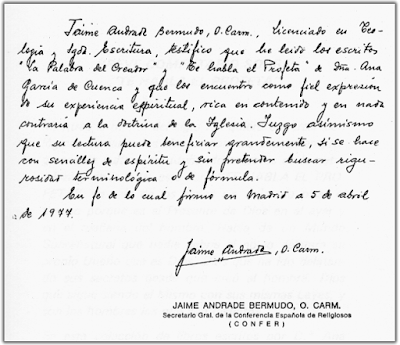 Jaime Andrade Bermudo, O. Carm., Licenciado en Teo-
logía y Sgda. Escritura, testifico que he leído los escritos
"La Palabra del Creador" y "Te habla el Profeta" de Dña. Ana
García de Cuenca y que los encuentro como fiel expresión
de su experiencia espiritual, rica en contenido y en nada
contraria a la doctrina de la Iglesia. Juzgo asimismo
que su lectura puede beneficiar grandemente, si se hace
con sencillez de espíritu y sin pretender buscar rigu-
rosidad terminológica o de fórmula.
En fe de lo cual firmo en Madrid a 5 de abril
de 1977.
Jaime Andrade, O. Carm.
JAIME ANDRADE BERMUDO, O. CARM.
Secretario Gral. de la Conferencia Española de Religiosos
(CONFER)